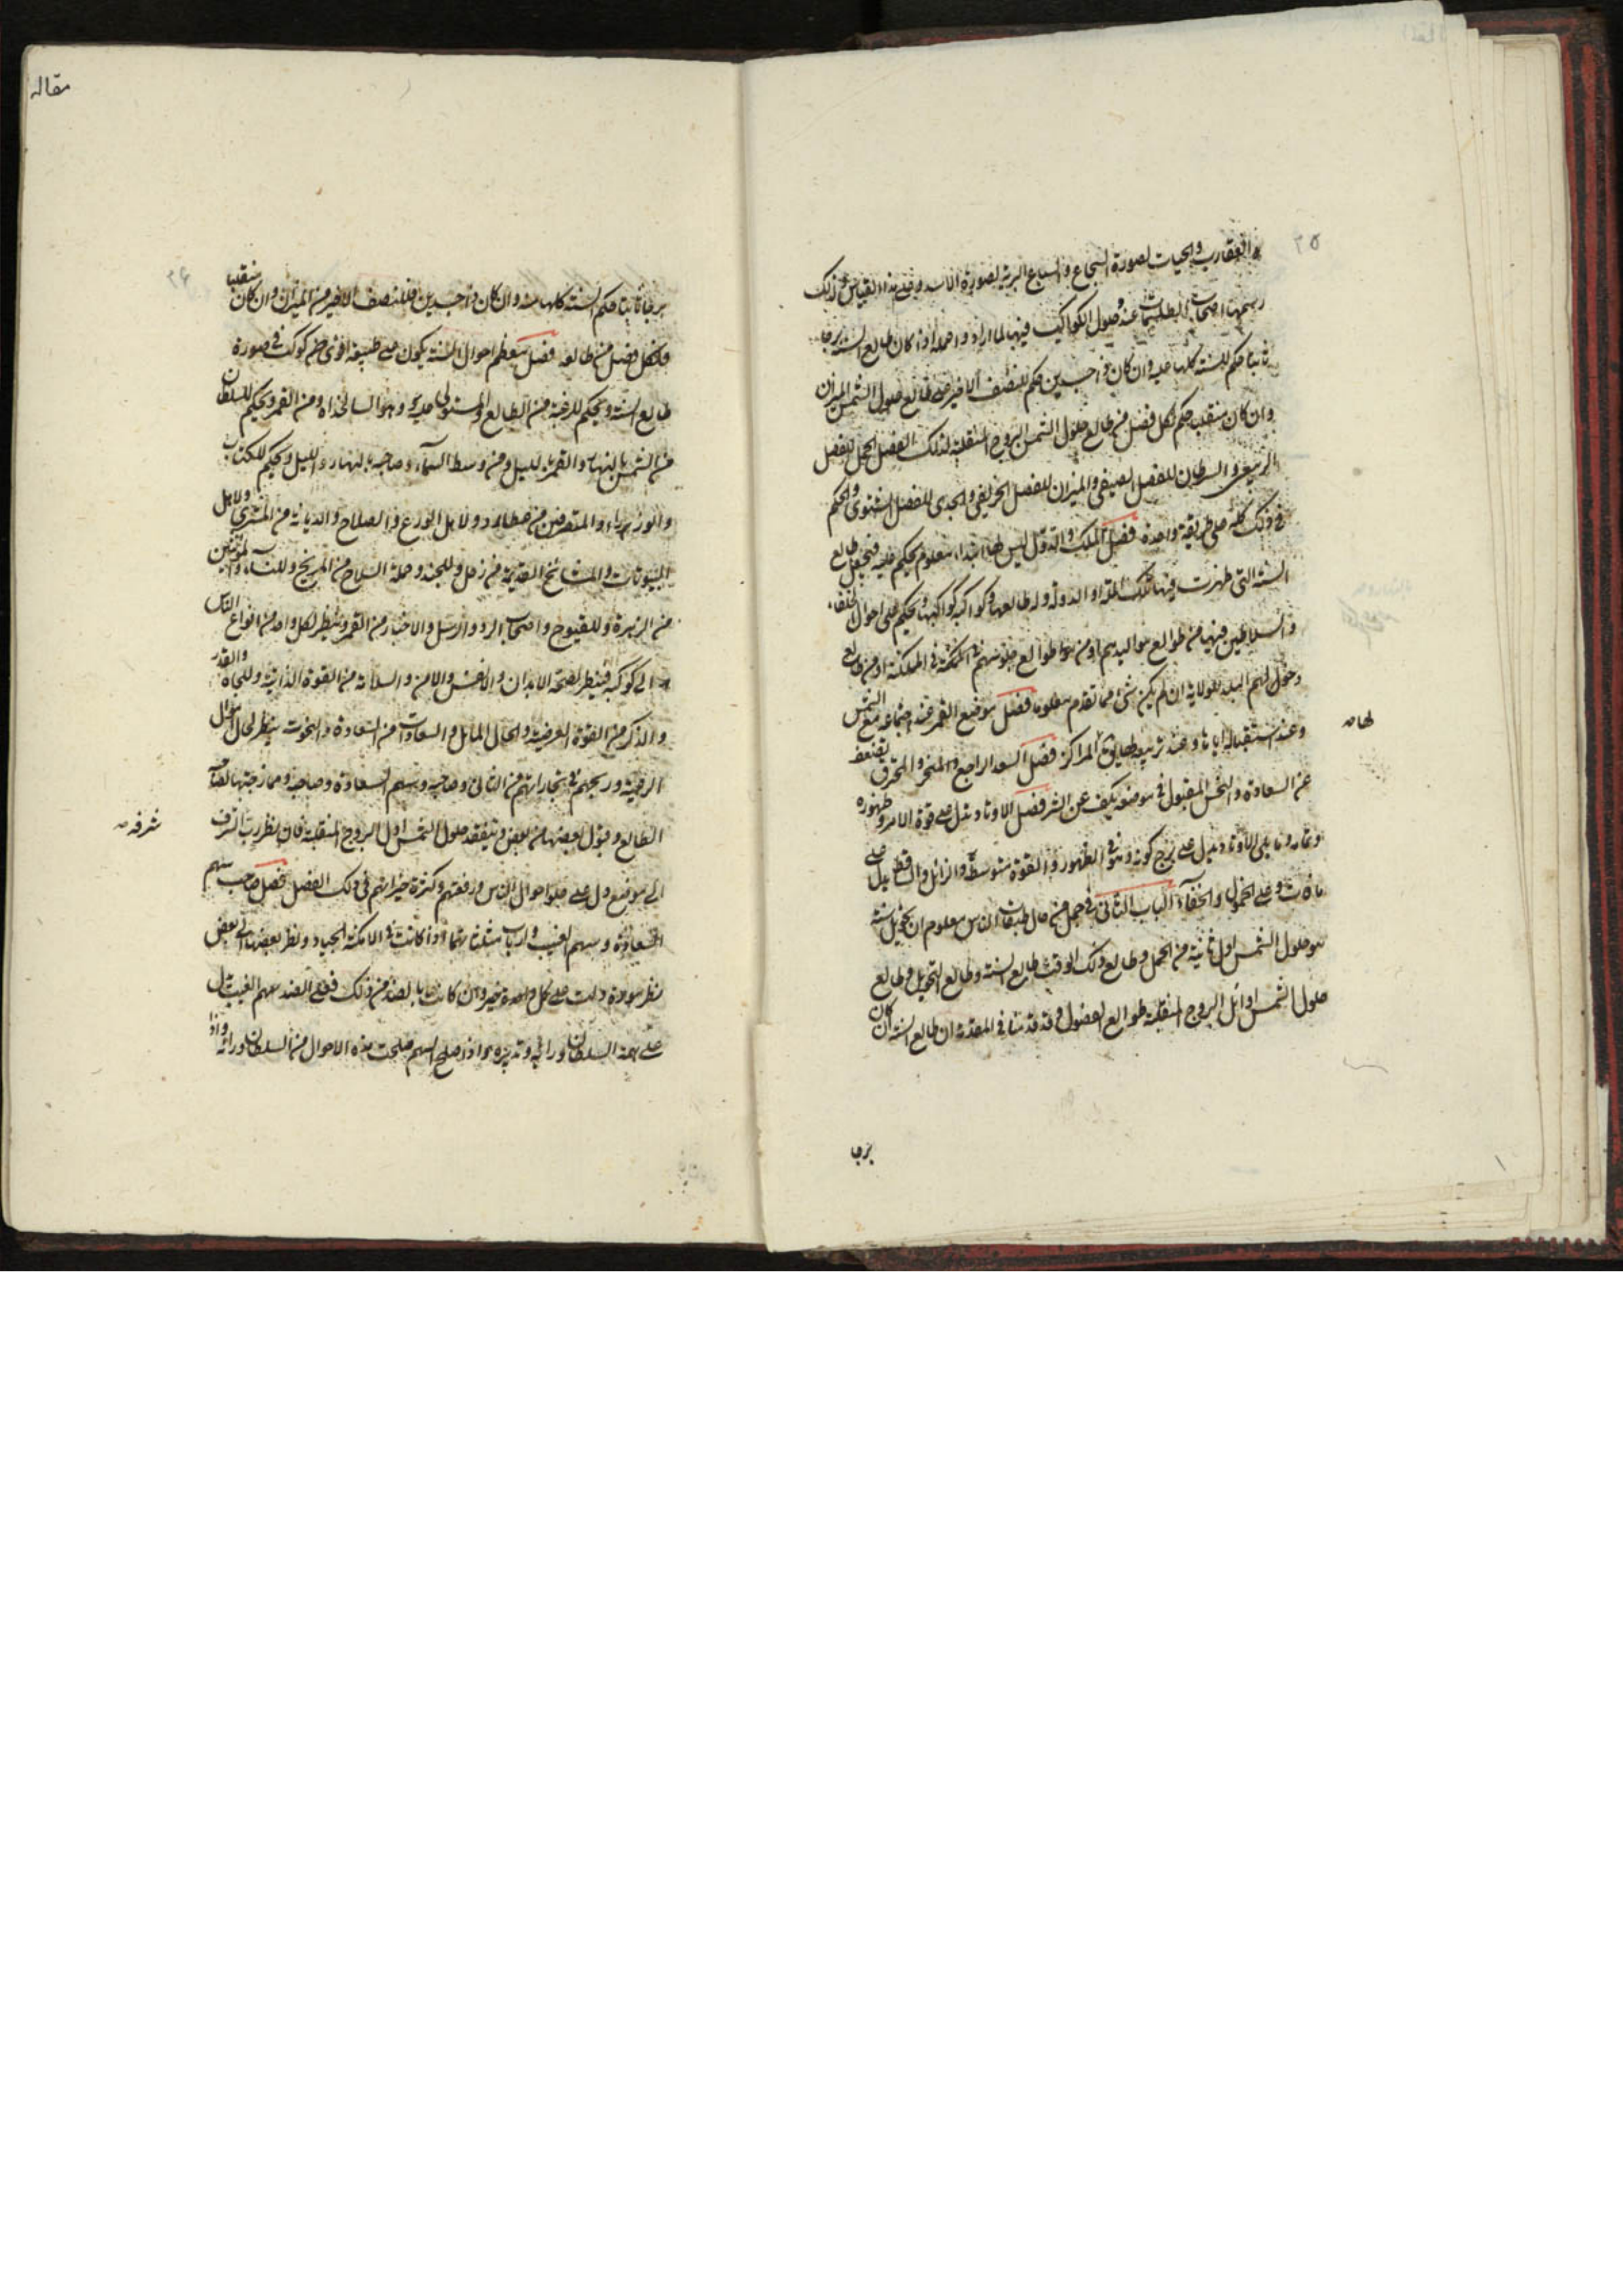 ٢٥
والعقارب والحيات لصورة الشجاع والسباع البرية لصورة الاسد وعلى هذا القياس ولذلك
رسمها اصحاب الطلسمات عند حلول الكواكب فيها لما ارادوا عمله اذا كان طالع السنة برجا
ثابتا حكم للسنة كلها عليه وان كان ذا جسدين حكم للنصف الاخير على طالع حلول الشمس الميزان
وان كان منقلب حكم لكل فصل من طالع حلول الشمس البروج المنقلبة لذلك الفصل الحمل للفصل
الربيعى والسرطان للفصل الصيفى والميزان للفصل الخريفى والجدى للفصل الشتوى والحكم
فى ذلك كله على طريقة واحدة فصل الملك والدول ليس لها ابتداء معلوم يحكم عليه فنجعل طالع
السنة التى ظهرت فيها تلك الملة او الدولة وله طالعها وكواكبه كواكبها ويحكم على احوال الخلفاء
والسلاطين فيها من طوالع مواليدهم او من طوالع جلوسهم فى المملكة او من طالع
دخولهم البلد للولاية ان لم يكن شئ مما تقدم معلوما فصل موضع القمر عند اجتماعه مع الشمس
وعند استقباله اياها وعند تربيعه المراكز فصل السعد الراجع والمنحوس والمحترق يضعف
عن السعادة والنحس المقبول فى موضعه يكف عن الشر فصل الاوتاد تدل على قوة الامر وظهوره
وثباته وما يلى الاوتاد تدل على برج كونه وهو فى الظهور والقوة متوسطة والزائل والساقط يدل على
ما فات وعلى الخمول والخفاء الباب الثانى فى جمل من حال طبقات الناس معلوم ان تحويل سنة
هو حلول الشمس اول ثانية من الحمل وطالع ذلك الوقت طالع السنة وطالع التحويل وطالع
حلول الشمس اوائل البروج المنقلبة طوالع الفصول وقد قدمنا فى المقدمة ان طالع السنة ان كان
برجا
لها
مقاله
٢٦
برجا ثابتا حكم السنة كلها منه وان كان ذا جسدين فللنصف الاخير من الميزان وان كان منقلبا
فلكل فصل من طالعه فصل معظم احوال السنة يكون على طبيعة اقوى كوكب فى صورة
طالع السنة ويحكم للرعية من الطالع والمستولى عليه وهو السالخداه ومن القمر ويحكم للسلطان
من الشمس بالنهار والقمر بالليل ومن وسط السماء وصاحبه بالنهار والليل ويحكم للكتاب
والوزراء والمتصرفين من عطارد ولاهل الورع والصلاح والديانة من المشترى ولاهل
البيوتات والمشايخ القديمة من زحل وللجند وحملة السلاح من المريخ وللنساء والمخنثين
من الزهرة وللفيوج واصحاب البرد والرسل والاخبار من القمر وينظر لكل واحد من انواع الناس
الى كوكبه فينظر لصحة الابدان والانفس والامن والسلامة من القوة الذاتية وللجاه والقدر
والذكر من القوة العرضية والحال المال والسعادات من السعادة والنحوت ينظر لحال اموال
الرعية وربحهم فى تجاراتهم من الثانى وصاحبه وسهم السعادة وصاحبه وممازجتها لصاحب
الطالع وقبول بعضها من بعض ويتفقد حلول الشمس اول البروج المنقلبة فان نظر رب الشرف
الى موضع دل على علو احوال الناس ورفعتهم وكثرة خيراتهم فى ذلك الفصل فصل صاحب سهم
السعادة وسهم الغيب وارباب مثلثاتهما اذا كانت فى الامكنة الجياد ونظر بعضها الى بعض
نظر مودة دلت على كل خير وان كانت بالضد من ذلك فعلى الضد سهم الغيب تدل
على همة السلطان ورائه وتدبيره واذا صلح السهم صلحت هذه الاحوال من السلطان ورائه واذا
شرفه